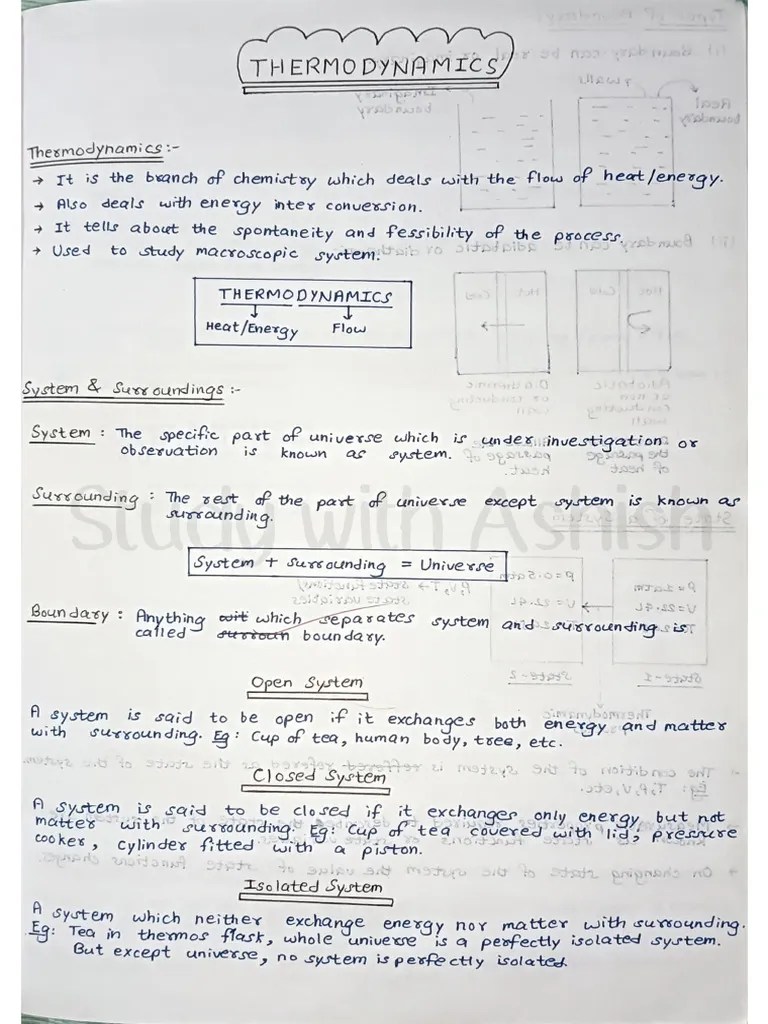 THERMODYNAMICS
Thermodynamics:-
→ It is the branch of chemistry which deals with the flow of heat/energy.
→ Also deals with energy inter conversion.
→ It tells about the spontaneity and fessibility of the process.
→ Used to study macroscopic system.
THERMODYNAMICS
Heat/Energy Flow
System & Surroundings :-
System : The specific part of universe which is under investigation or
observation is known as system.
Surrounding : The rest of the part of universe except system is known as
surrounding.
Study with Ashish
System + surrounding = Universe
Boundary : Anything wit which separates system and surrounding is
called surroun boundary.
Open System
A system is said to be open if it exchanges both energy and matter
with surrounding. Eg: Cup of tea, human body, tree, etc.
Closed System
A system is said to be closed if it exchanges only energy but not
matter with surrounding. Eg: Cup of tea covered with lid, pressure
cooker, cylinder fitted with a piston.
Isolated System
A system which neither exchange energy nor matter with surrounding.
Eg: Tea in thermos flask, whole universe is a perfectly isolated system.
But except universe, no system is perfectly isolated.